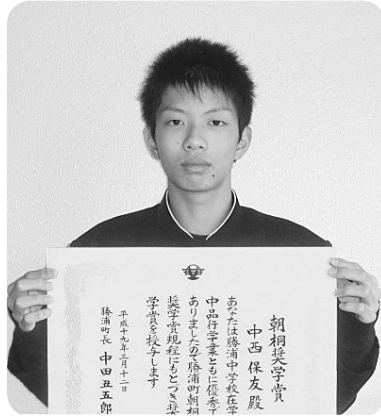 朝桐奨学賞
中西保友殿
あなたは勝浦中学校在学
中品行学業ともに優秀で
ありましたので勝浦町朝桐
奨学賞規程にもとづき奨
学賞を授与します
平成十九年三月十二日
勝浦町長 中田丑五郎